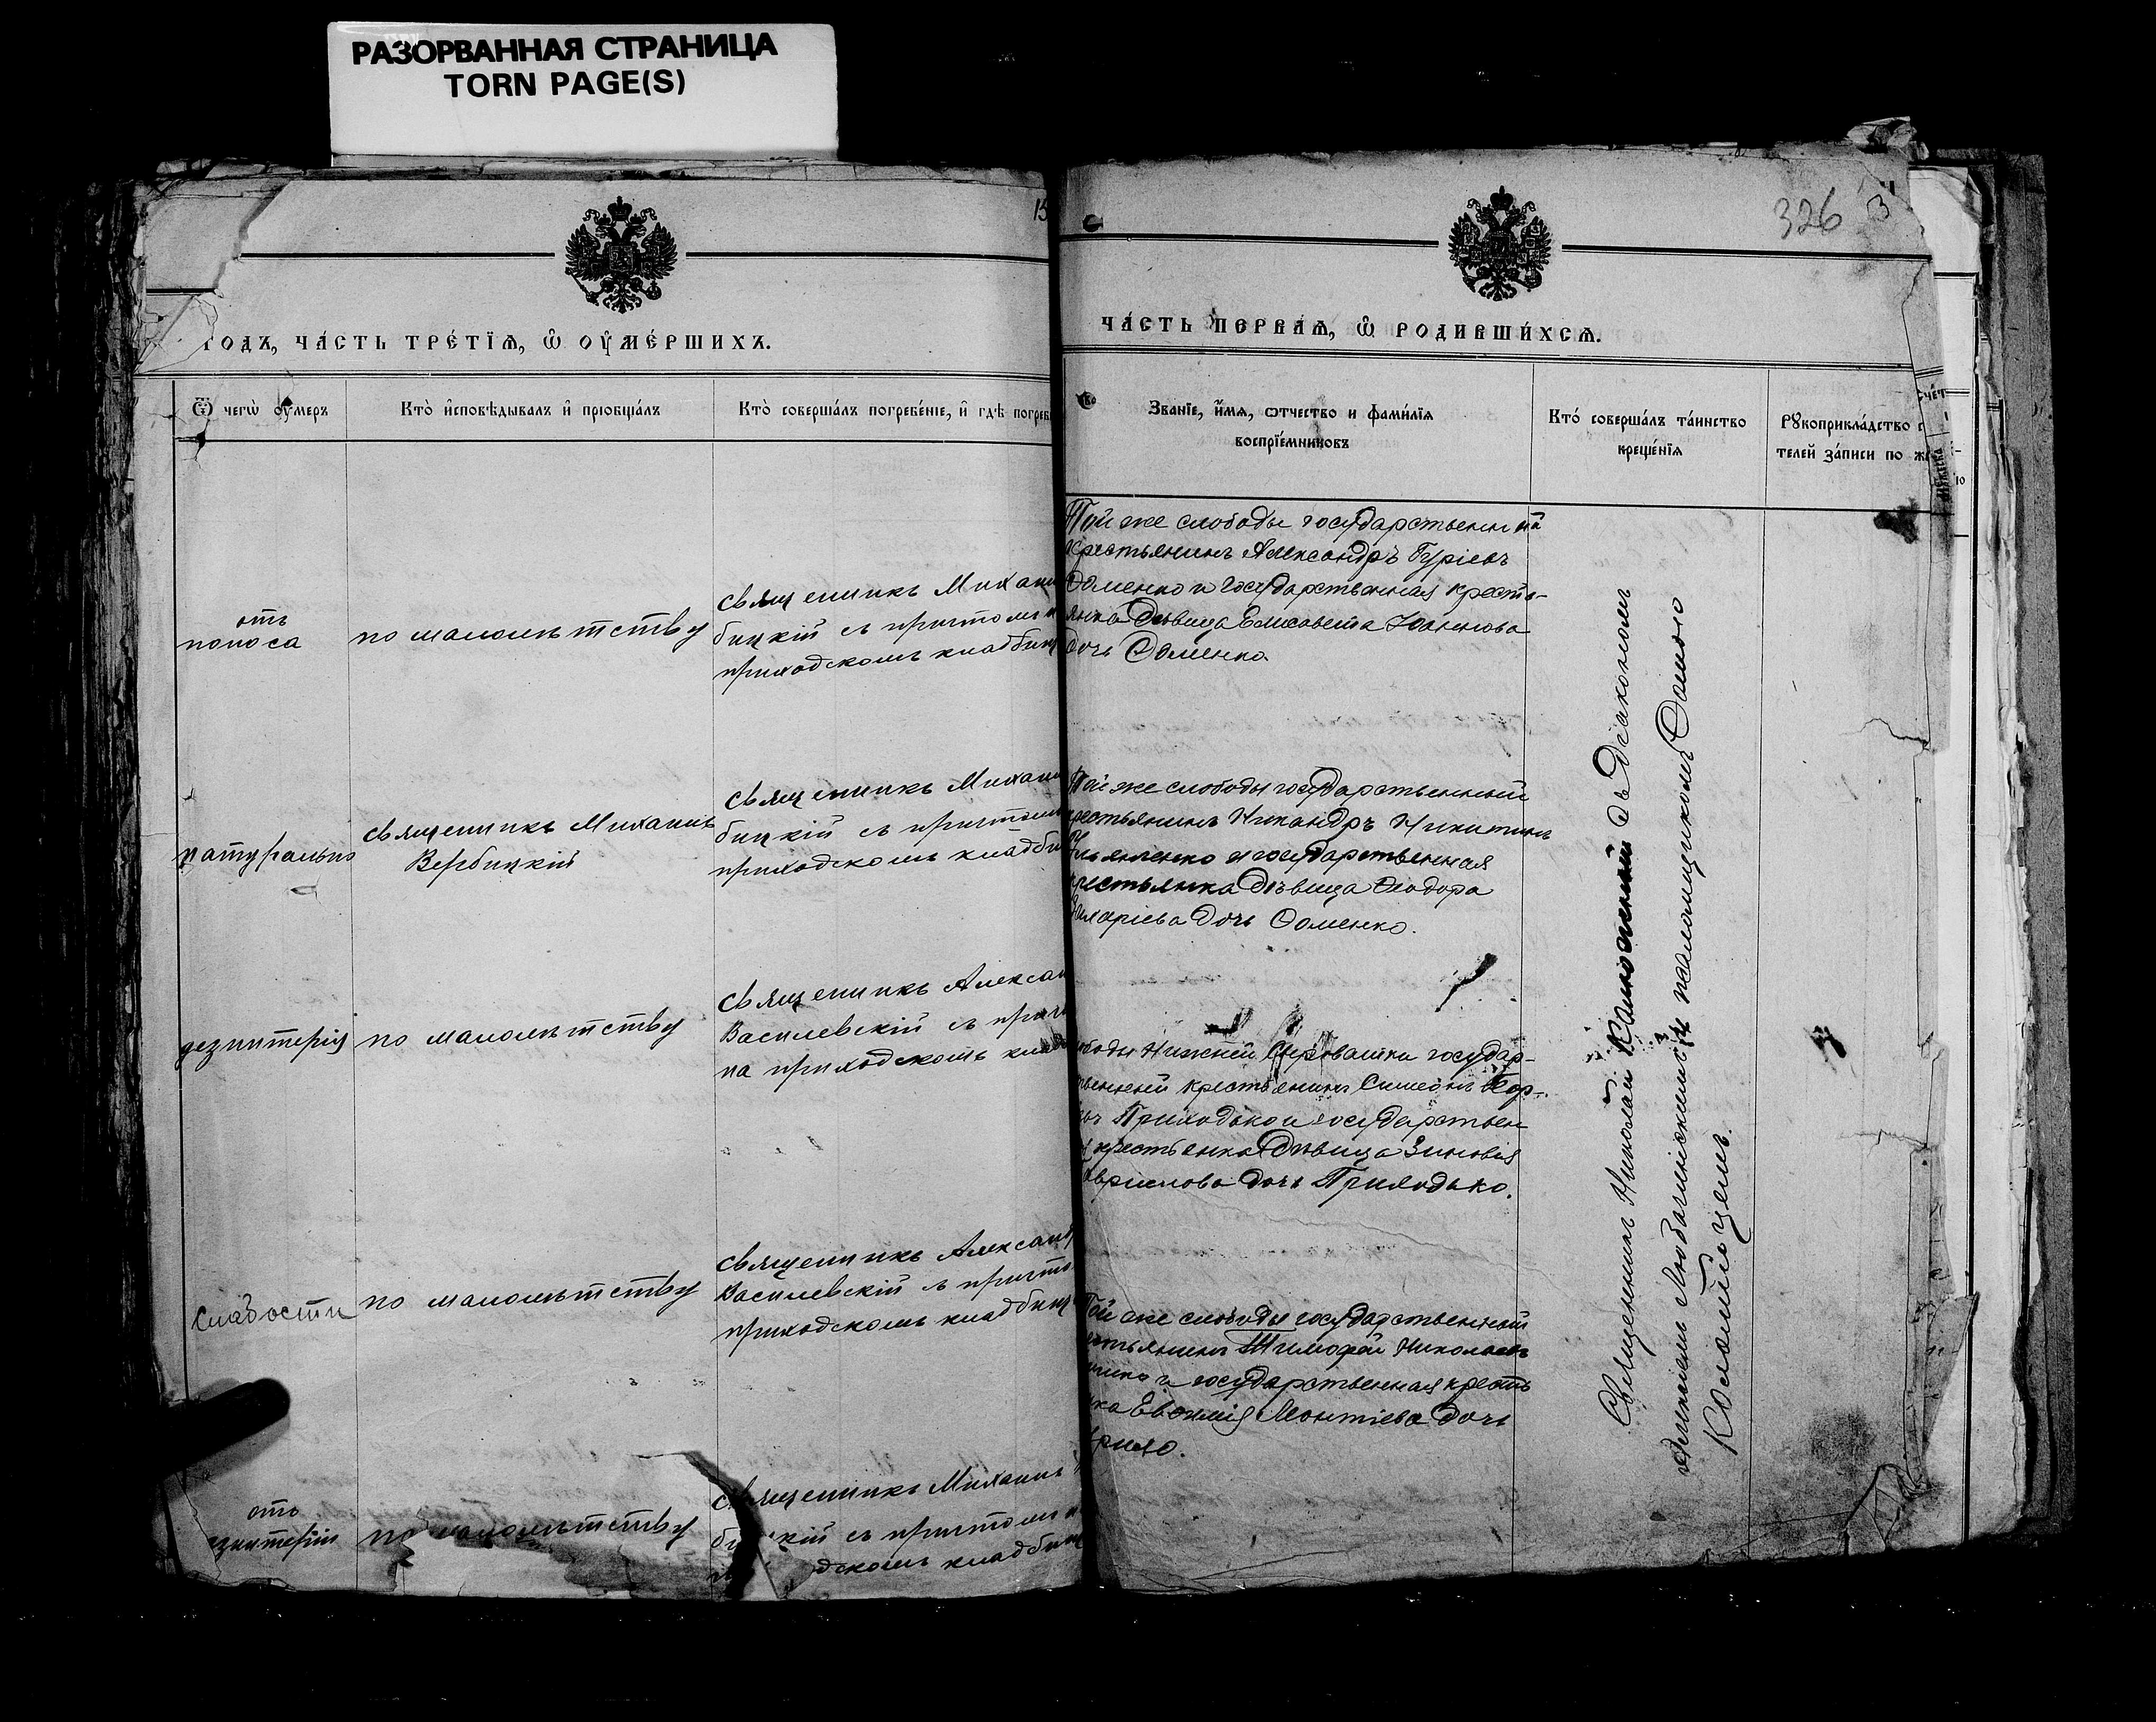 РАЗОРВАННАЯ СТРАНИЦА
TORN PAGE(S)
15
годъ, ча́сть тре́тїѧ, ѡ҆ оу҆ме́ршихъ.
Ѿ чегѡ̀ оу҆́меръ
Кто̀ и҆сповѣ́дывалъ и҆ прїобща́лъ
Кто̀ соверша́лъ погребе́нїе, и҆ гдѣ̀ погреб
отъ
поноса
по малолѣтству
священникъ Михаи
бицкій съ причтомъ н
приходскомъ кладбищ
натурально
священникъ Михаилъ
Вербицкій
священникъ Михаи
бицкій съ причтомъ
приходскомъ кладби
дезинтерія
по малолѣтству
священникъ Алексан
Василевскій съ прич
на приходскомъ клад
слабости
по малолѣтству
священникъ Александ
Василевскій съ причто
приходскомъ кладбищ
отъ
езинтеріи
по малолѣтству
священникъ Михаилъ
би кій съ причтомъ н
одскомъ кладбищ
326 3
ча́сть пе́рваѧ, ѡ҆ роди́вшихсѧ.
Зва́нїе, и҆́мѧ, ѻ҆́тчество и фами́лїѧ
воспрїе́мниковъ
Кто́ соверша́лъ та́инство
креще́нїѧ
Рꙋкоприкла́дство с
телей за́писи по ж
Той же слободы государственный
крестьянинъ Александръ Гуріевъ
Ѳоменко и государственная кресть-
янка дѣвица Елисавета Іоаннова
дочь Ѳоменко.
Той же слободы государственный
рестьянинъ Никандръ Никитинъ
Ульяненко и государственная
крестьянка дѣвица Ѳеодора
Захаріева дочь Ѳоменко.
ободы Нижней Сыроватки государ-
твенный крестьянинъ Симеонъ
Приходько и государствен
крестьянка дѣвица Зиновія
авріилова дочь Приходько.
Той же слободы государственный
естьянинъ Тимофей Николаевъ
и государственная кресть
ка Евѳимія Леонтіева дочь
Священникъ Николай съ Діакономъ
и псаломщикомъ Ѳомою
Коломійцемъ.